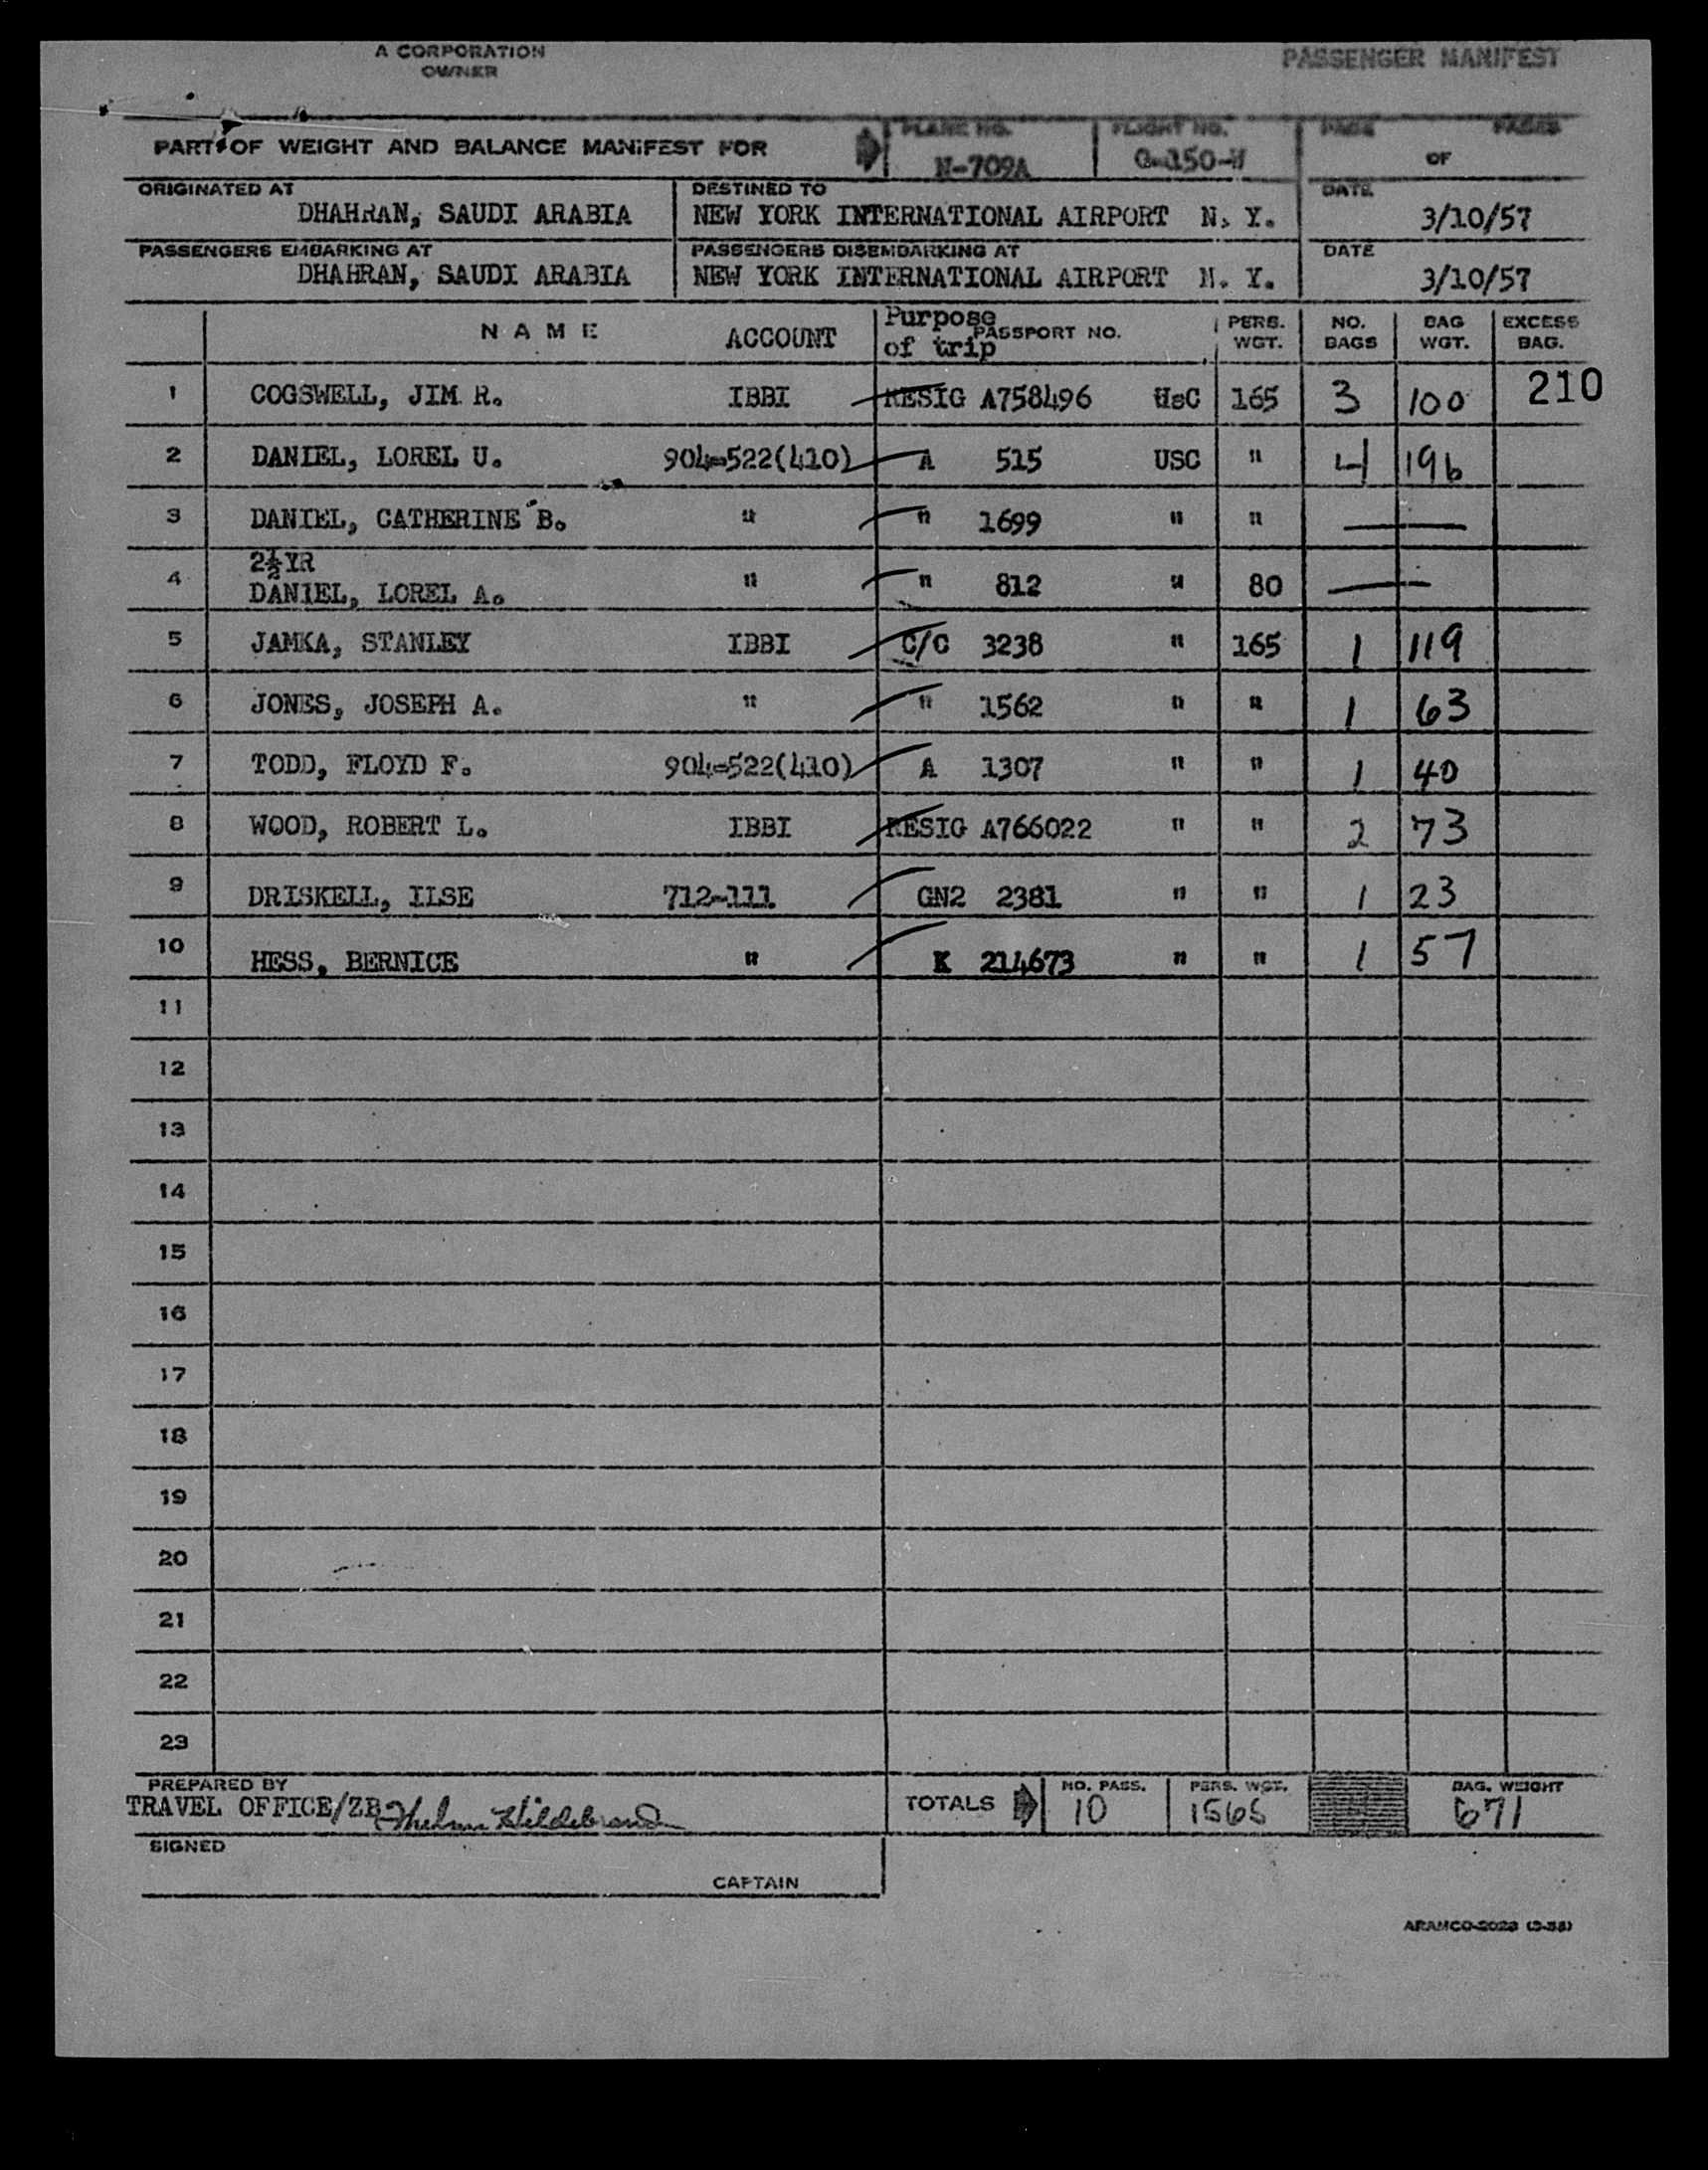 A CORPORATION
OWNER
PASSENGER MANIFEST
PART OF WEIGHT AND BALANCE MANIFEST FOR
PLANE NO.
N-709A
FLIGHT NO.
PAGE OF PAGES
ORIGINATED AT
DHAHRAN, SAUDI ARABIA
DESTINED TO
NEW YORK INTERNATIONAL AIRPORT N. Y.
DATE
3/10/57
PASSENGERS EMBARKING AT
DHAHRAN, SAUDI ARABIA
PASSENGERS DISEMBARKING AT
NEW YORK INTERNATIONAL AIRPORT N. Y.
DATE
3/10/57
NAME ACCOUNT Purpose of trip PASSPORT NO. PERS. WGT. NO. BAGS BAG WGT. EXCESS BAG.
1 COGSWELL, JIM R. IBBI RESIG A758496 UsC 165 3 100 210
2 DANIEL, LOREL U. 904-522(410) A 515 USC " 4 196
3 DANIEL, CATHERINE B. " " 1699 " " —
4 2½YR
DANIEL, LOREL A. " " 812 " 80 —
5 JAMKA, STANLEY IBBI C/C 3238 " 165 1 119
6 JONES, JOSEPH A. " " 1562 " " 1 63
7 TODD, FLOYD F. 904-522(410) A 1307 " " 1 40
8 WOOD, ROBERT L. IBBI RESIG A766022 " " 2 73
9 DRISKELL, ILSE 712-111 GN2 2381 " " 1 23
10 HESS, BERNICE " K 214673 " " 1 57
11
12
13
14
15
16
17
18
19
20
21
22
23
PREPARED BY
TRAVEL OFFICE/ZB Thelma Hildebrand
TOTALS
NO. PASS.
10
PERS. WGT.
1565
BAG. WEIGHT
671
SIGNED
CAPTAIN
ARAMCO-2028